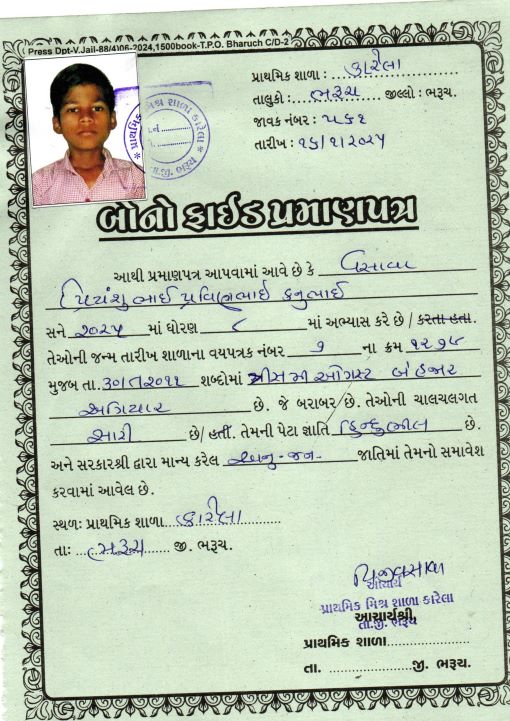 Press Dpt-V.Jail-88/4)06-2024,1500book-T.P.O. Bharuch C/D-2
પ્રાથમિક શાળા : કારેલા
તાલુકો : ભરૂચ જીલ્લો : ભરૂચ.
જાવક નંબર : ૫૬૧
તારીખ : ૧૬/૧/૨૦૨૫
પ્રાથમિક મિશ્ર શાળા કારેલા
તા.જી. ભરૂચ
બોનોફાઈડ પ્રમાણપત્ર
આથી પ્રમાણપત્ર આપવામાં આવે છે કે વસાવા
પ્રિયાંશુભાઈ પ્રવિણભાઈ કનુભાઈ
સને ૨૦૨૫ માં ધોરણ ૮ માં અભ્યાસ કરે છે / કરતા હતા.
તેઓની જન્મ તારીખ શાળાના વયપત્રક નંબર ૧ ના ક્રમ ૧૨૭૫
મુજબ તા. ૩૦/૮/૨૦૧૧ શબ્દોમાં ત્રીસમી ઓગસ્ટ બે હજાર
અગિયાર છે. જે બરાબર છે. તેઓની ચાલચલગત
સારી છે/ હતી. તેમની પેટા જ્ઞાતિ હિન્દુભીલ છે.
અને સરકારશ્રી દ્વારા માન્ય કરેલ અનુ-જન- જાતિમાં તેમનો સમાવેશ
કરવામાં આવેલ છે.
સ્થળઃ પ્રાથમિક શાળા કારેલા
તાઃ ભરૂચ જી. ભરૂચ.
આચાર્ય
પ્રાથમિક મિશ્ર શાળા કારેલા
તા.જી. ભરૂચ
આચાર્યશ્રી,
પ્રાથમિક શાળા
તા. જી. ભરૂચ.